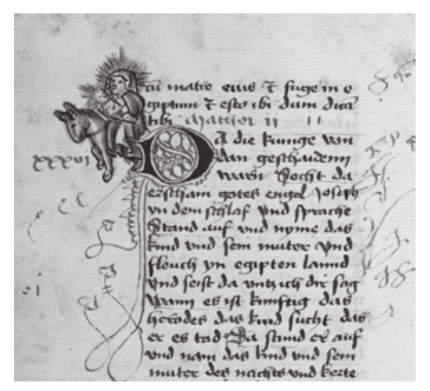 cū mat̄e eius ⁊ fuge in e
giptum ⁊ esto ibi dum dicā
tibi Mathei ii
xxxvi
DA die kunige von
dan geschaidenn
warn Nocht da
erscham gotes engel Joseph
yn dem schlaf vnd sprache
Stand auf vnd nyme das
kind vnd sein muter vnd
fleuch yn egipten lannd
vnd seist da vntz ich dir sag
wann es ist kunftig das
herodes das kind sucht das
er es tod Da stund er auf
vnd nam das kind vnd sein
muter des nachts vnd kerte